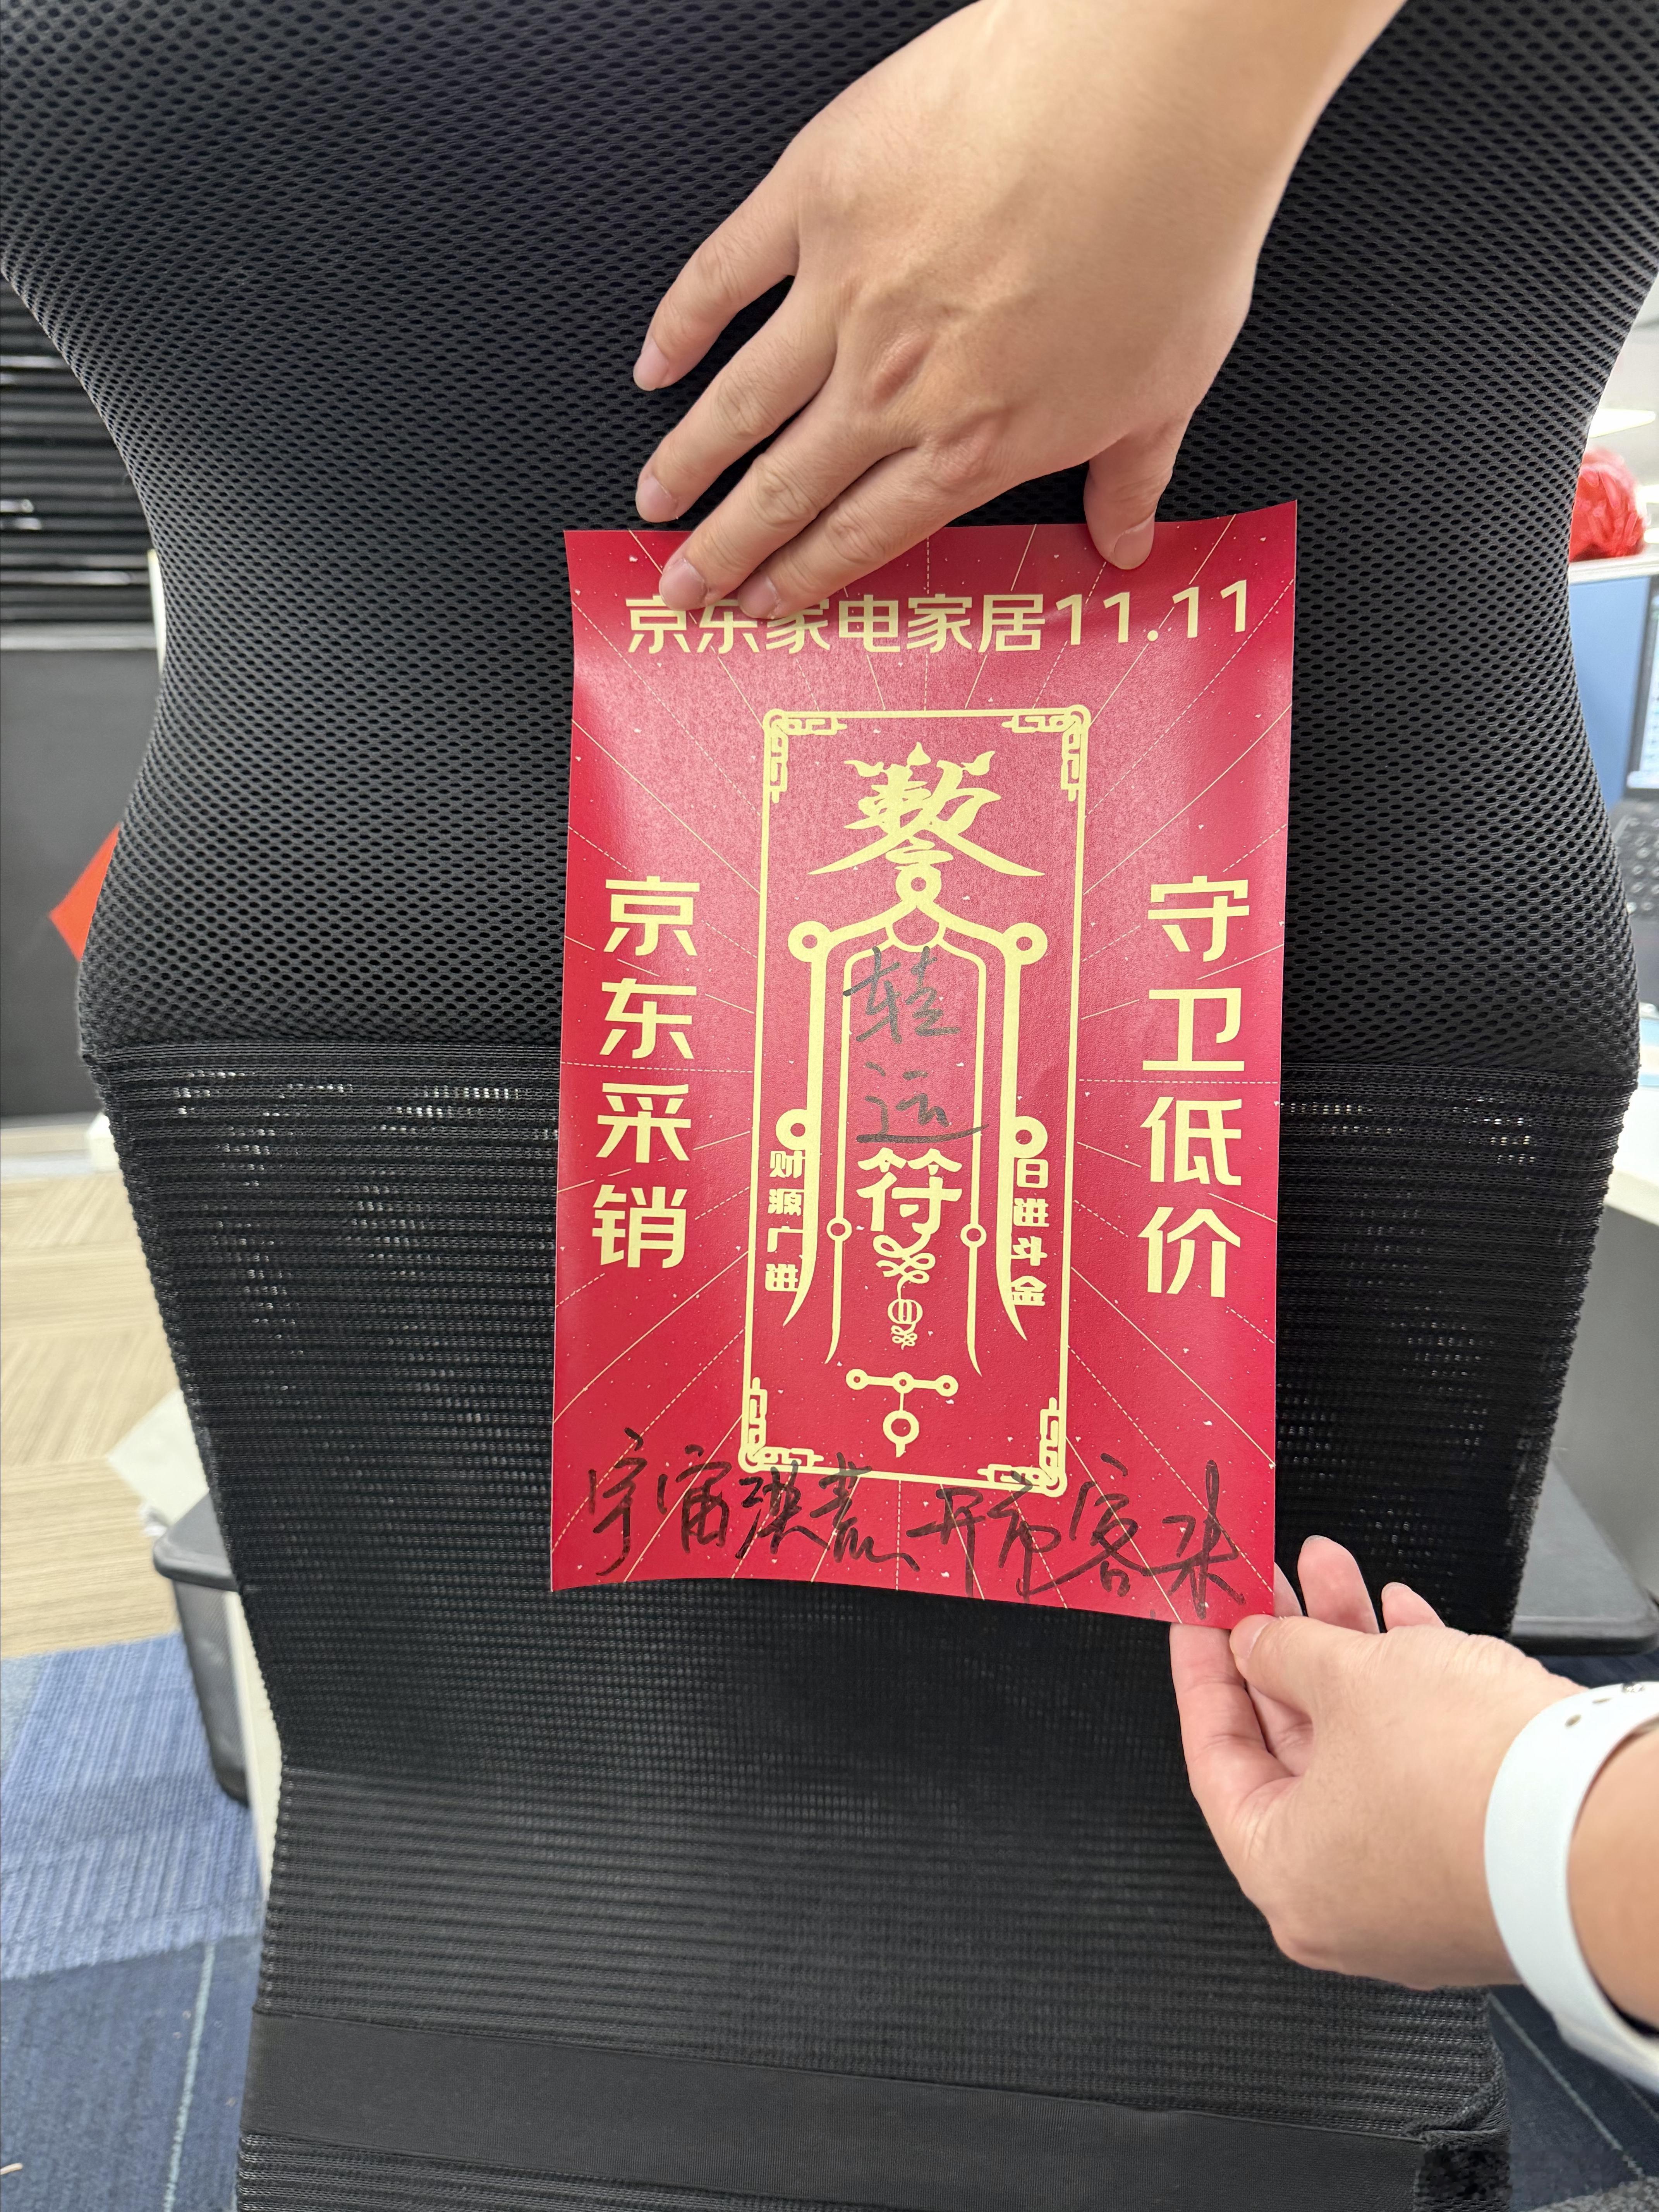 京东家电家居11.11
京东采销
守卫低价
转
运
符
财源广进
日进斗金
开市客来